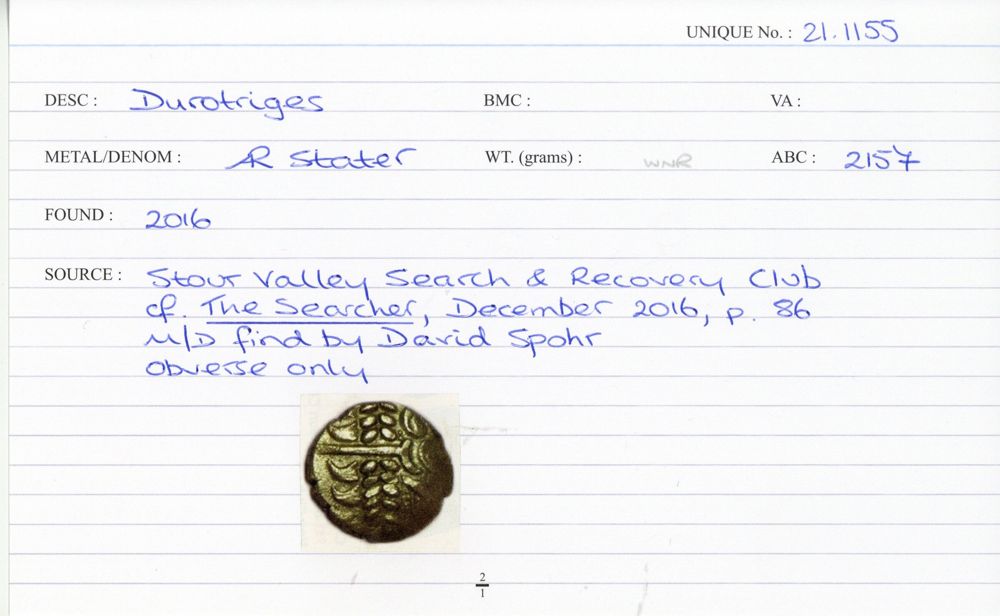 UNIQUE No. : 21.1155
DESC : Durotriges BMC : VA :
METAL/DENOM : AR Stater WT. (grams) : WNR ABC : 2157
FOUND : 2016
SOURCE : Stour Valley Search & Recovery Club
cf. The Searcher, December 2016, p. 86
M/D find by David Spohr
obverse only
2
1